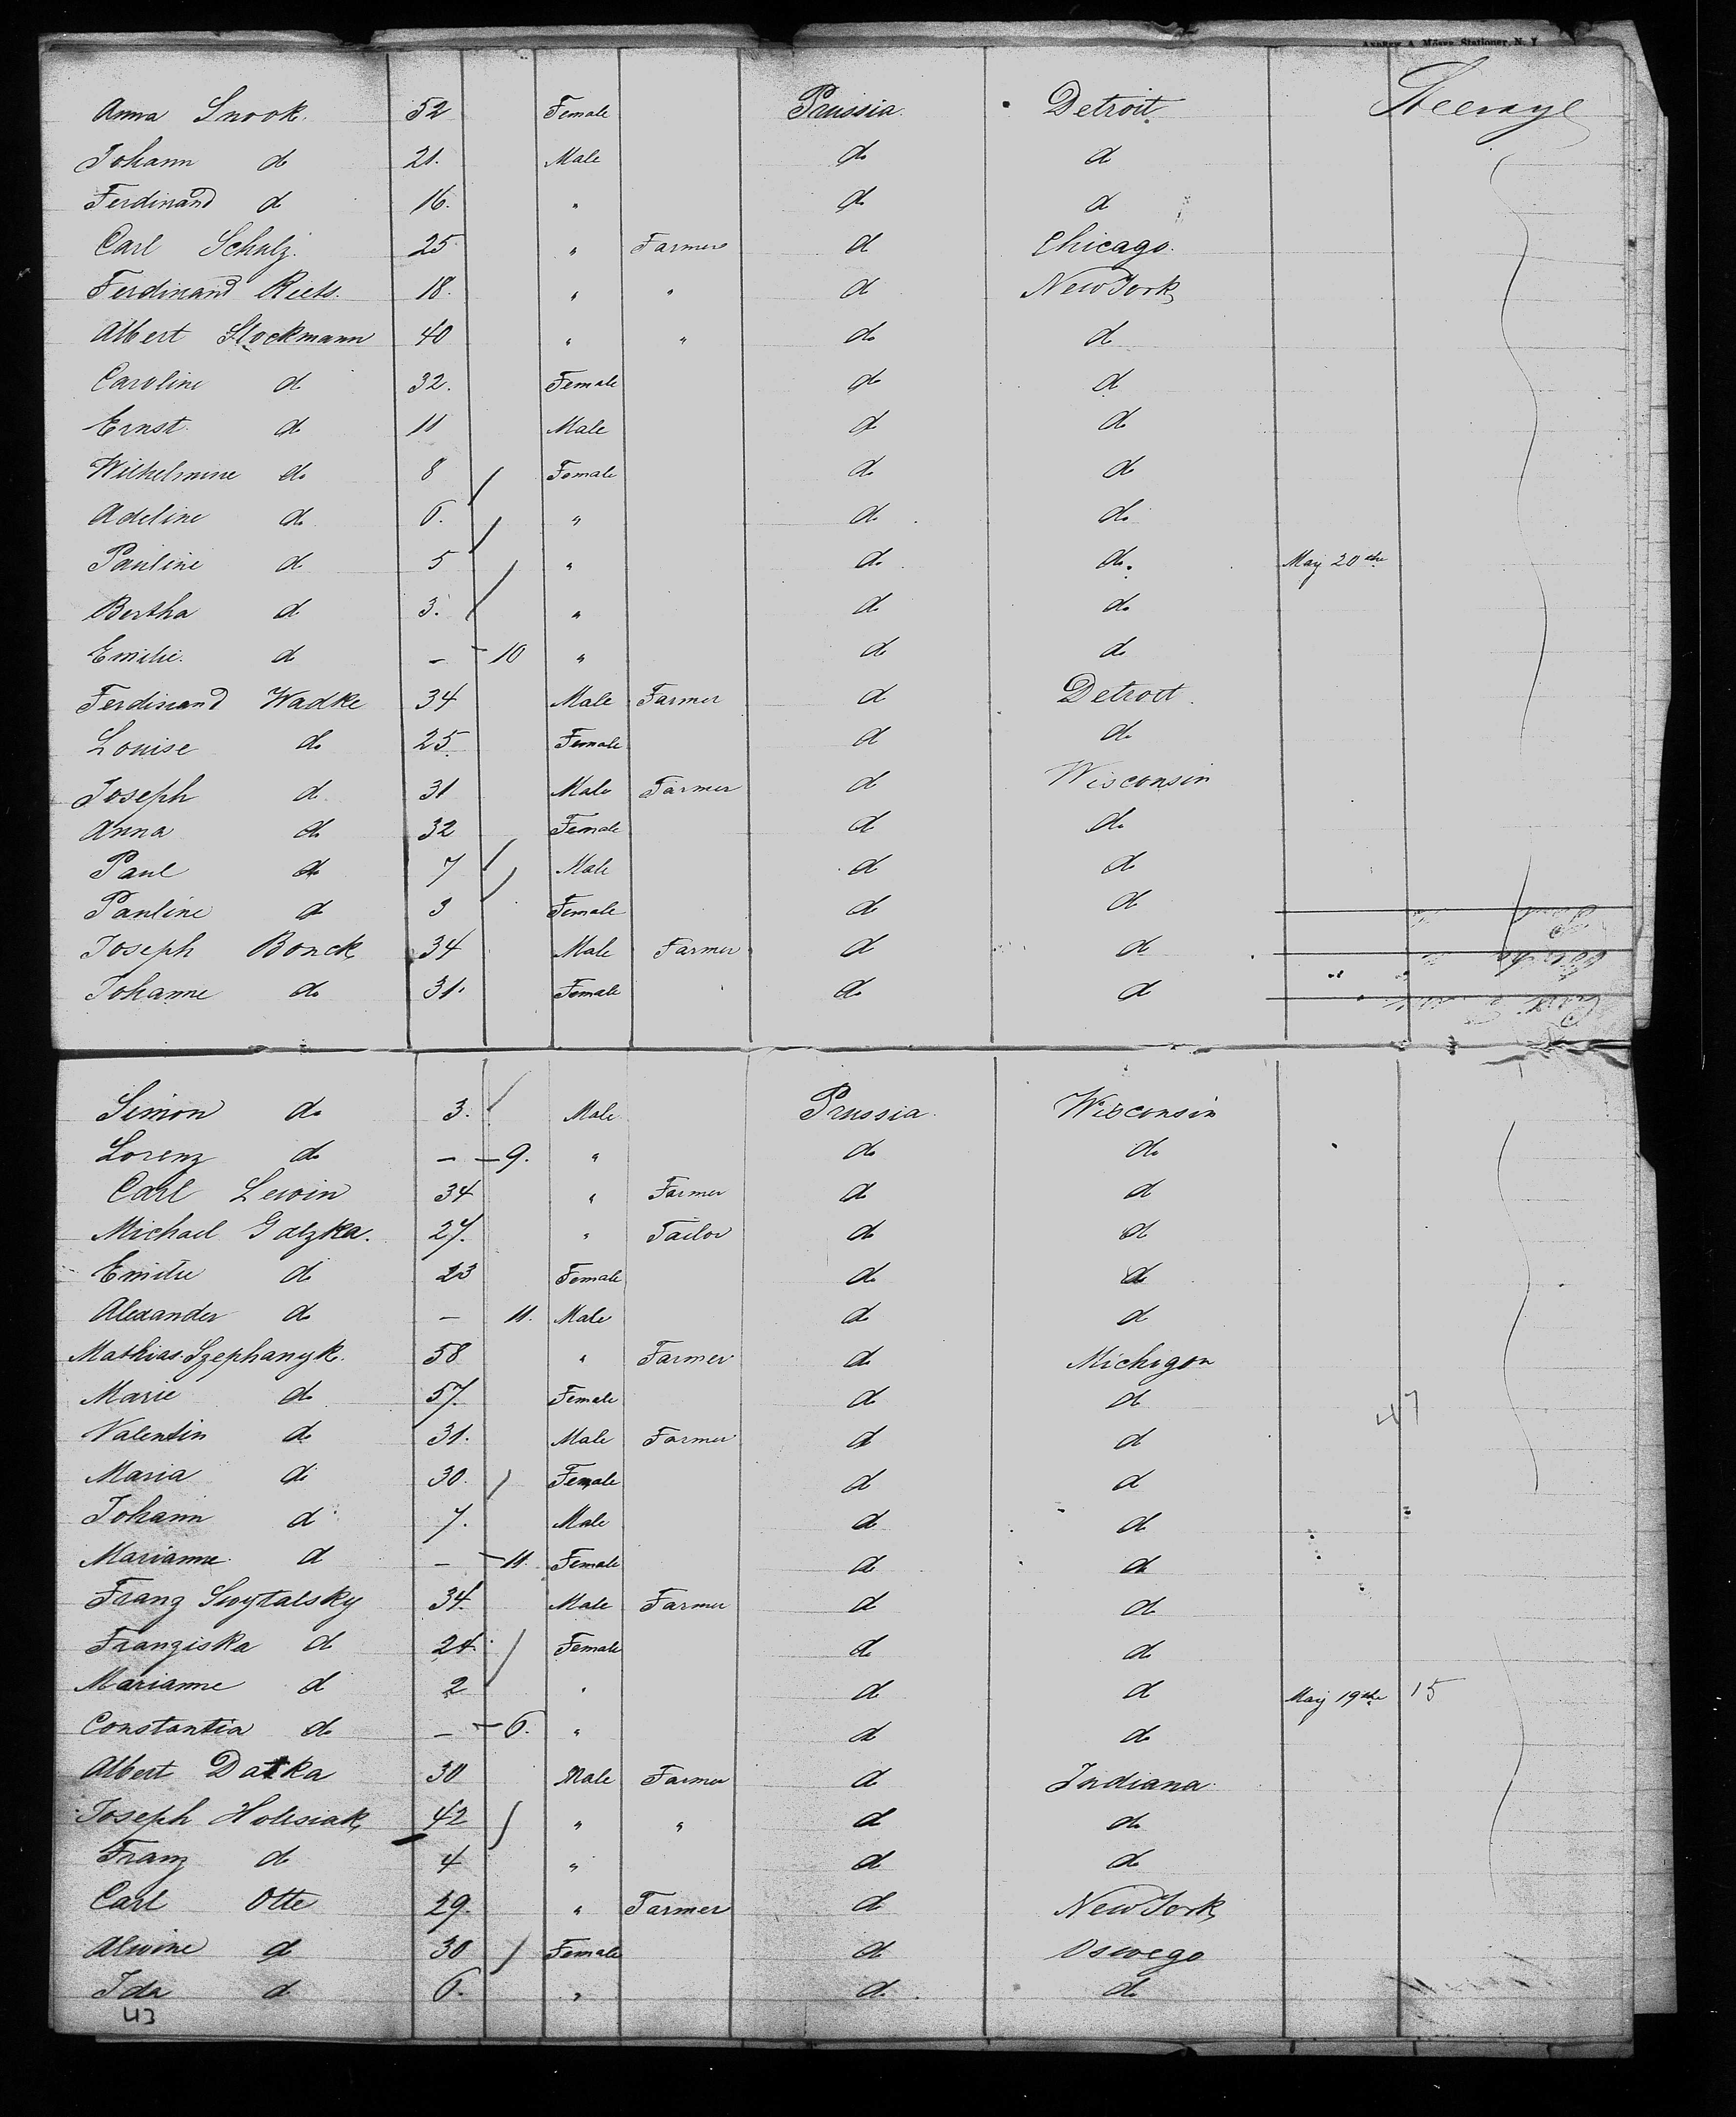 Andrew A. Mōser, Stationer, N. Y.
Anna Snook. 52 Female Prussia. Detroit. Steerage
Johann do 21. Male do do
Ferdinand do 16. " do do
Carl Schulz. 25 " Farmer do Chicago.
Ferdinand Riets. 18. " " do New York
Albert Stockmann 40 " " do do
Caroline do 32. Female do do
Ernst do 11 Male do do
Wilhelmine do 8 / Female do do
Adeline do 6. / " do do
Pauline do 5 / " do do. May 20th
Bertha do 3. / " do do
Emilie. do - - 10 " do do
Ferdinand Wadke 34 Male Farmer do Detroit.
Louise do 25. Female do do
Joseph do 31 Male Farmer do Wisconsin
Anna do 32 Female do do
Paul do 7 / Male do do
Pauline do 3 / Female do do
Joseph Bonck 34 Male Farmer do do
Johanne do 31. Female do do
Simon do 3. / Male Prussia. Wisconsin
Lorenz do - - 9. " do do
Carl Lewin 34 " Farmer do do
Michael Galzka. 27. " Tailor do do
Emilie do 23 Female do do
Alexander do - 11. Male do do
Mathias Szephanyk. 58 " Farmer do Michigan
Marie do 57. Female do do
Valentin do 31. Male Farmer do do
Maria do 30. / Female do do
Johann do 7. Male do do
Marianne. do - - 11. Female do do
Franz Swytalsky 34. Male Farmer do do
Franziska do 24. / Female do do
Marianne do 2 " do do May 19th 15
Constantia do - - 6. " do do
Albert Datka 30 Male Farmer do Indiana.
Joseph Holisiak 42 / " " do do
Franz do 4 " do do
Carl Otte 29. " Farmer do New York
Alwine do 30 / Female do Oswego
Ida do 6. " do. do
43